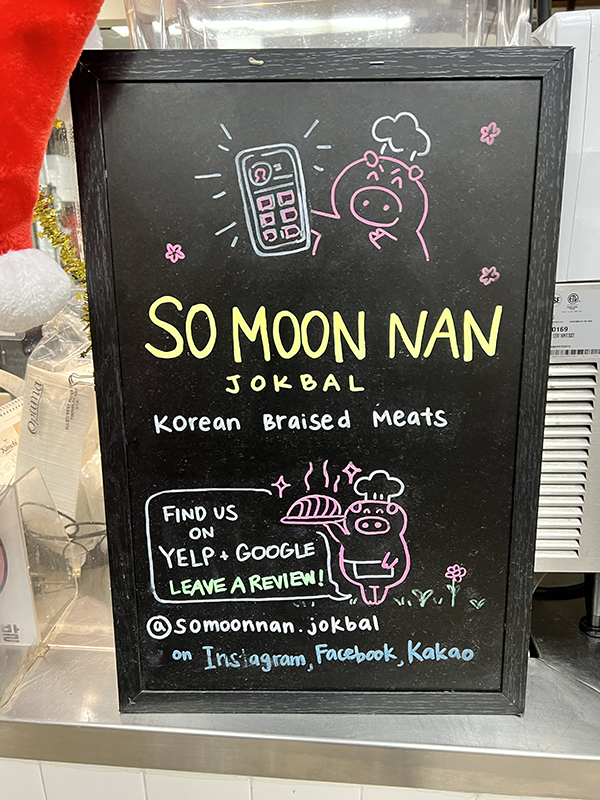 SO MOON NAN
JOKBAL
Korean Braised Meats
FIND US
ON
YELP + GOOGLE
LEAVE A REVIEW!
@somoonnan.jokbal
on Instagram, Facebook, Kakao
Optima
0169